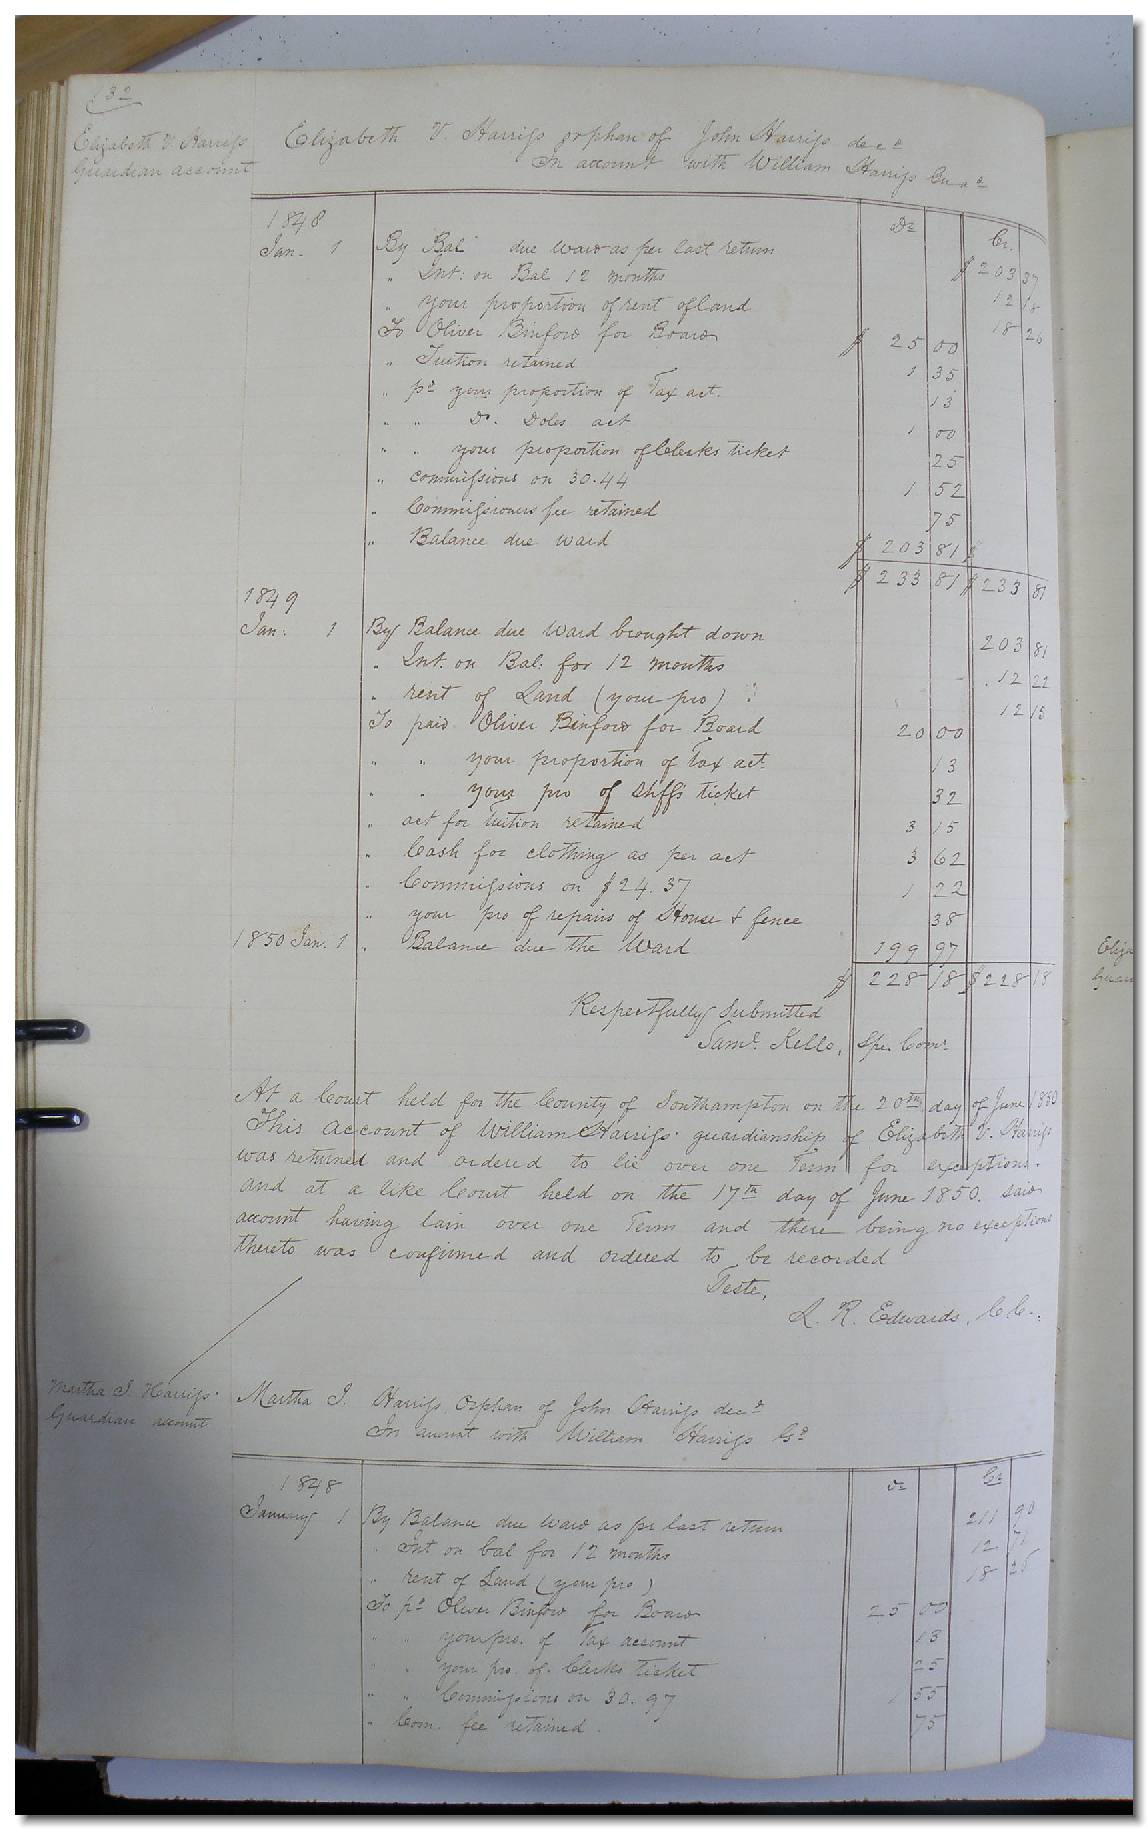 132
Elizabeth V. Harriss
Guardian account
Elizabeth V. Harriss orphan of John Harriss decd
In account with William Harriss Guad
Dr Cr.
1848
Jan. 1 By Bal due Ward as per last return $203 37
" Int: on Bal 12 months 12 18
" your proportion of rent of land 18 26
To Oliver Binford for Board $ 25 00
" Tuition retained 1 35
" pd your proportion of Tax act. 13
" " Dr. Doles act 1 00
" " your proportion of Clerks ticket 25
" commissions on 30.44 1 52
" Commissioners fee retained 75
" Balance due ward $ 203 81 $
$ 233 81 $ 233 81
1849
Jan. 1 By Balance due Ward brought down 203 81
" Int. on Bal: for 12 months 12 22
" rent of Land (your pro) 12 15
To paid Oliver Binford for Board 20 00
" " your proportion of Tax act. 13
" " your pro of Shffs ticket 32
" act for Tuition retained 3 15
" Cash for clothing as per act 3 62
" Commissions on $24.37 1 22
" your pro of repairs of House & fence 38
1850 Jan. 1 " Balance due the Ward 199 97
$ 228 18 $ 228 18
Respectfully Submitted
Saml. Kello, Spe. Comr.
At a Court held for the County of Southampton on the 20th day of June 1850
This account of William Harriss guardianship of Elizabeth V. Harriss
was returned and ordered to lie over one Term for exceptions.
and at a like Court held on the 17th day of June 1850. said
account having lain over one Term and there being no exceptions
thereto was confirmed and ordered to be recorded
Teste,
L. R. Edwards, C.C.
Martha J. Harriss
Guardian account
Martha J. Harriss Orphan of John Harriss decd
In account with William Harriss Gd
Dr Cr
1848
January 1 By Balance due Ward as pr last return 211 90
" Int on bal for 12 months 12 71
" rent of Land (your pro) 18 26
To pd Oliver Binford for Board 25 00
" " your pro. of Tax account 13
" " your pro. of Clerks ticket 25
" " Commissions on 30.97 1 55
" Com. fee retained. 75